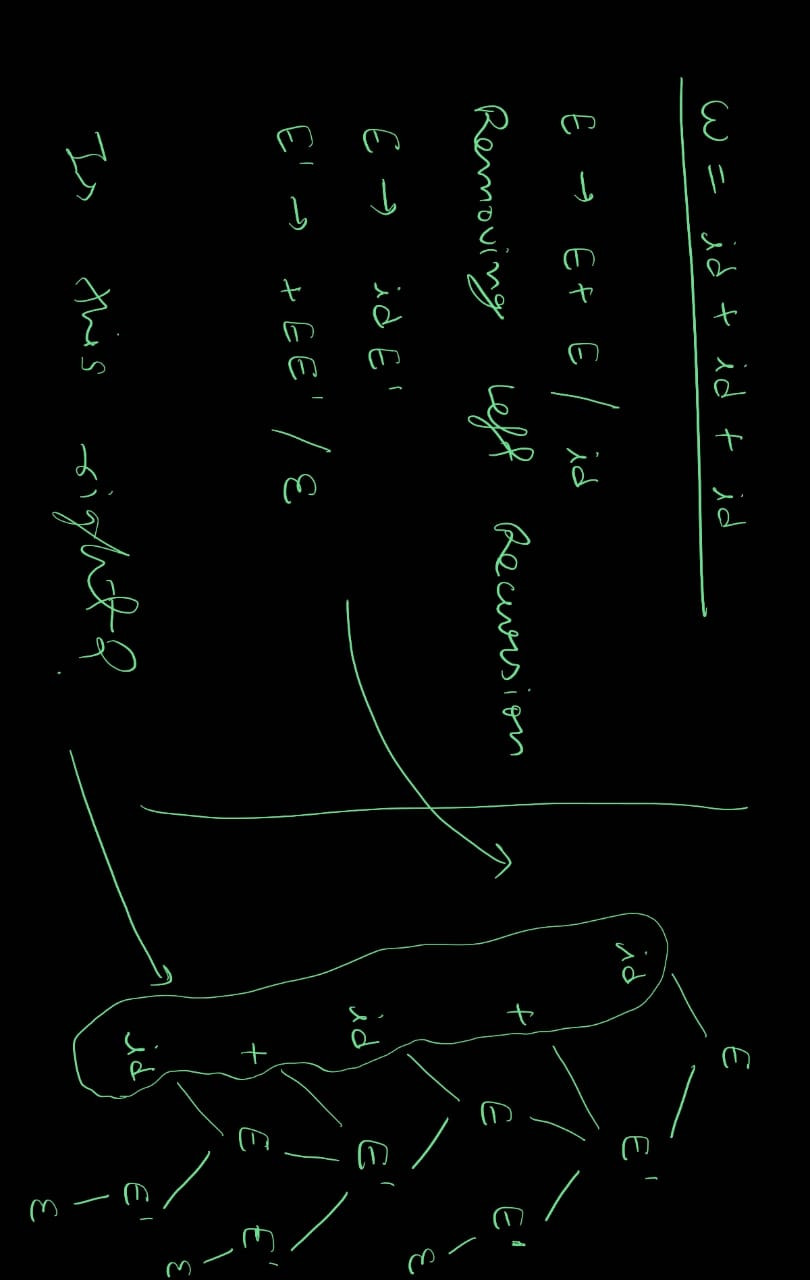 w = id + id + id
E → E + E / id
Removing left Recursion
E → id E'
E' → + E E' / ε
Is this right?
E
id E'
+ E E'
id E' ε
+ E E'
id E' ε
ε